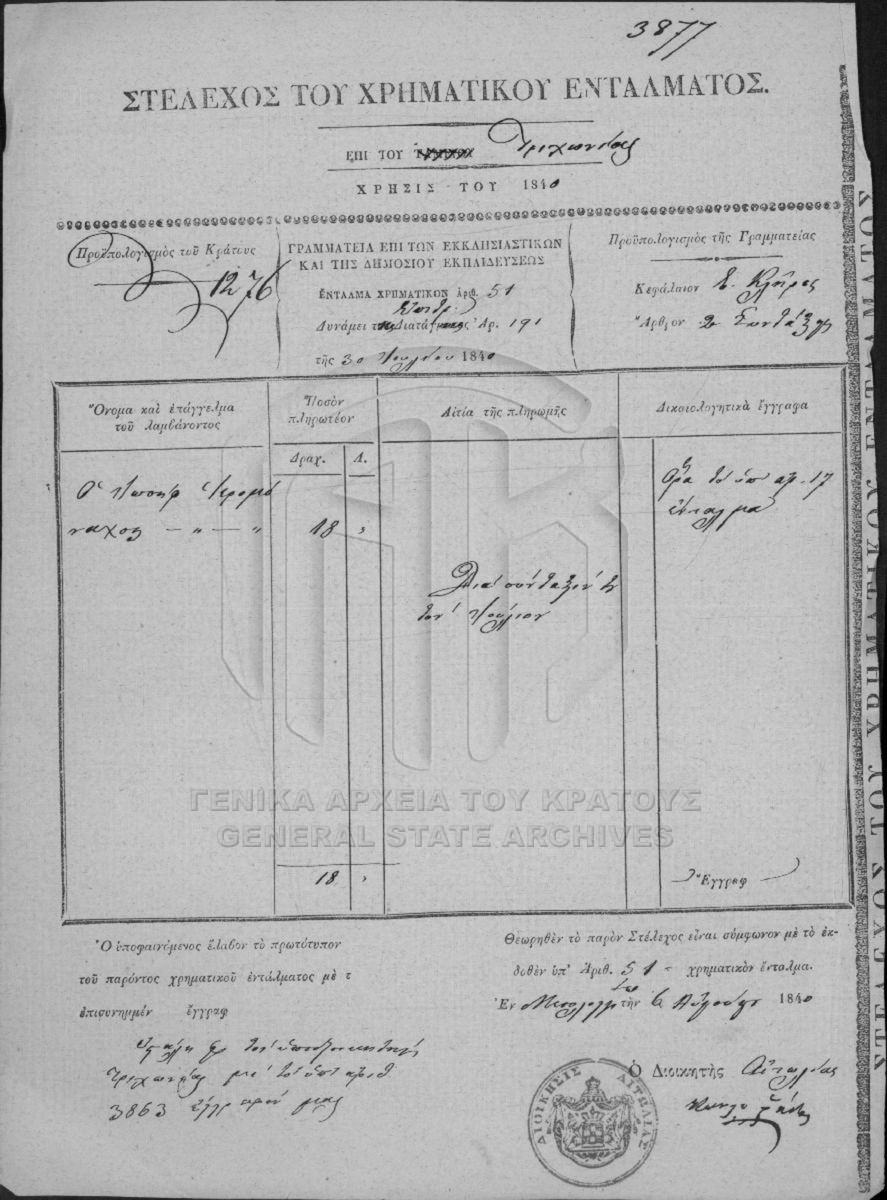 3877
ΣΤΕΛΕΧΟΣ ΤΟΥ ΧΡΗΜΑΤΙΚΟΥ ΕΝΤΑΛΜΑΤΟΣ.
ΕΠΙ ΤΟΥ Τριχωνίας
ΧΡΗΣΙΣ ΤΟΥ 1840
Προϋπολογισμὸς τοῦ Κράτους
1276
ΓΡΑΜΜΑΤΕΙΑ ΕΠΙ ΤΩΝ ΕΚΚΛΗΣΙΑΣΤΙΚΩΝ
ΚΑΙ ΤΗΣ ΔΗΜΟΣΙΟΥ ΕΚΠΑΙΔΕΥΣΕΩΣ
ΕΝΤΑΛΜΑ ΧΡΗΜΑΤΙΚΟΝ Ἀριθ. 51
Δυνάμει τῆς Διαταγῆς Ἀρ. 191
τῆς 30 Ἰουλίου 1840
Προϋπολογισμὸς τῆς Γραμματείας
Κεφάλαιον Κλῆρος
Ἄρθρον 2 Συντάξεις
Ὄνομα καὶ ἐπάγγελμα
τοῦ λαμβάνοντος
Ποσὸν
πληρωτέον
Αἰτία τῆς πληρωμῆς
Δικαιολογητικὰ ἔγγραφα
Δραχ. Λ.
Ὁ Ἰωσὴφ Ἱερομό
ναχος — „ — „ 18 „
Ὅρα τὸ ὑπ ἀρ. 17
ἔνταλμα
Διὰ σύνταξίν του
τὸν Ἰούλιον
ΓΕΝΙΚΑ ΑΡΧΕΙΑ ΤΟΥ ΚΡΑΤΟΥΣ
GENERAL STATE ARCHIVES
18 „
Ἔγγραφ
Ὁ ὑποφαινόμενος ἔλαβον τὸ πρωτότυπον
τοῦ παρόντος χρηματικοῦ ἐντάλματος μὲ τ
ἐπισυνημμέν ἔγγραφ
Τριχωνίας μὲ τὸ ὑπ ἀριθ
3863 ἔγγραφόν μας
Θεωρηθὲν τὸ παρὸν Στέλεχος εἶναι σύμφωνον μὲ τὸ ἐκ-
δοθὲν ὑπ' Ἀριθ. 51 - χρηματικὸν ἔνταλμα.
Ἐν Μεσολογγίῳ τὴν 6 Αὐγούστου 1840
Ὁ Διοικητὴς Αἰτωλίας
ΔΙΟΙΚΗΣΙΣ ΑΙΤΩΛΙΑΣ
ΣΤΕΛΕΧΟΣ ΤΟΥ ΧΡΗΜΑΤΙΚΟΥ ΕΝΤΑΛΜΑΤΟΣ